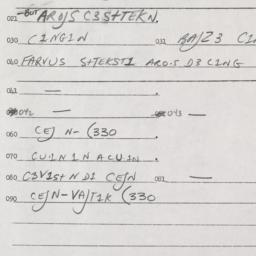 021 BUT AROJS C3S+TEKN.
030 CINGIN 031 BAJZ3 CI
040 FARVUS S+TEKSTI ARO.S D3 CING
041 —
042 — 043 —
060 CEJ N- (330
070 CU.IN I N A CU.IN
080 C3VIS+N DI CEJN 081 —
090 CEJN-VAJTIK (330